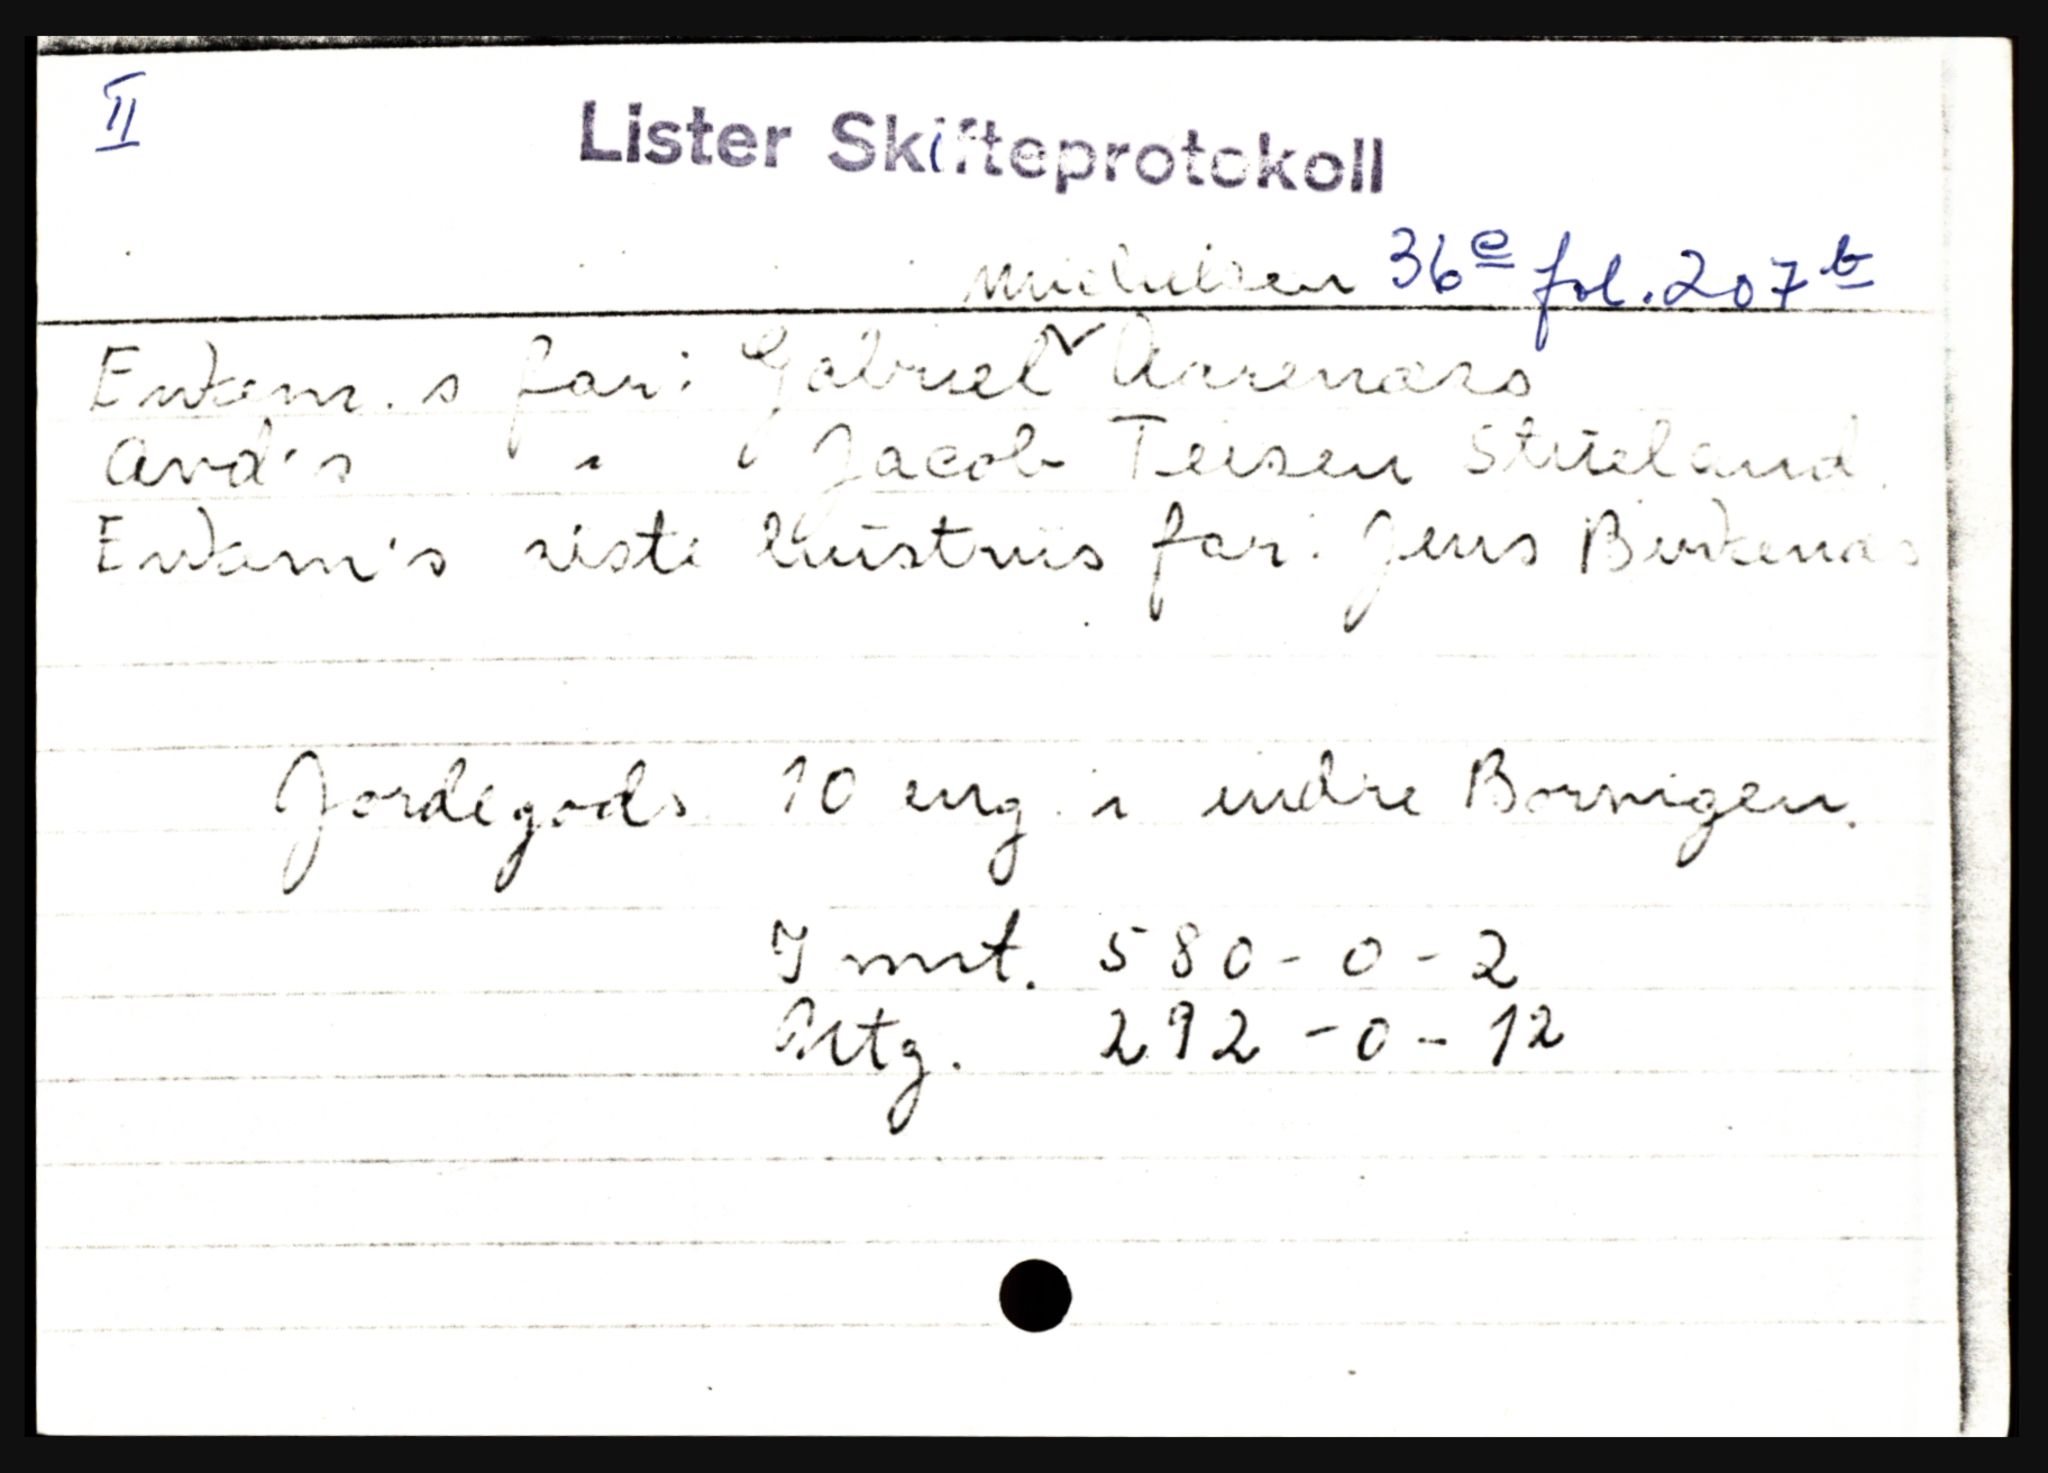 II
Lister Skifteprotokoll
Michelsen 36e fol. 207b
Enkem. s far: Gabriel Aarenæs
Avd's " Jacob Teisen Strieland
Enkem's siste hustrus far: Jens Birkenæs
Jordegods 10 eng. i indre Borvigen.
I mt. 580-0-2
Utg. 292-0-12